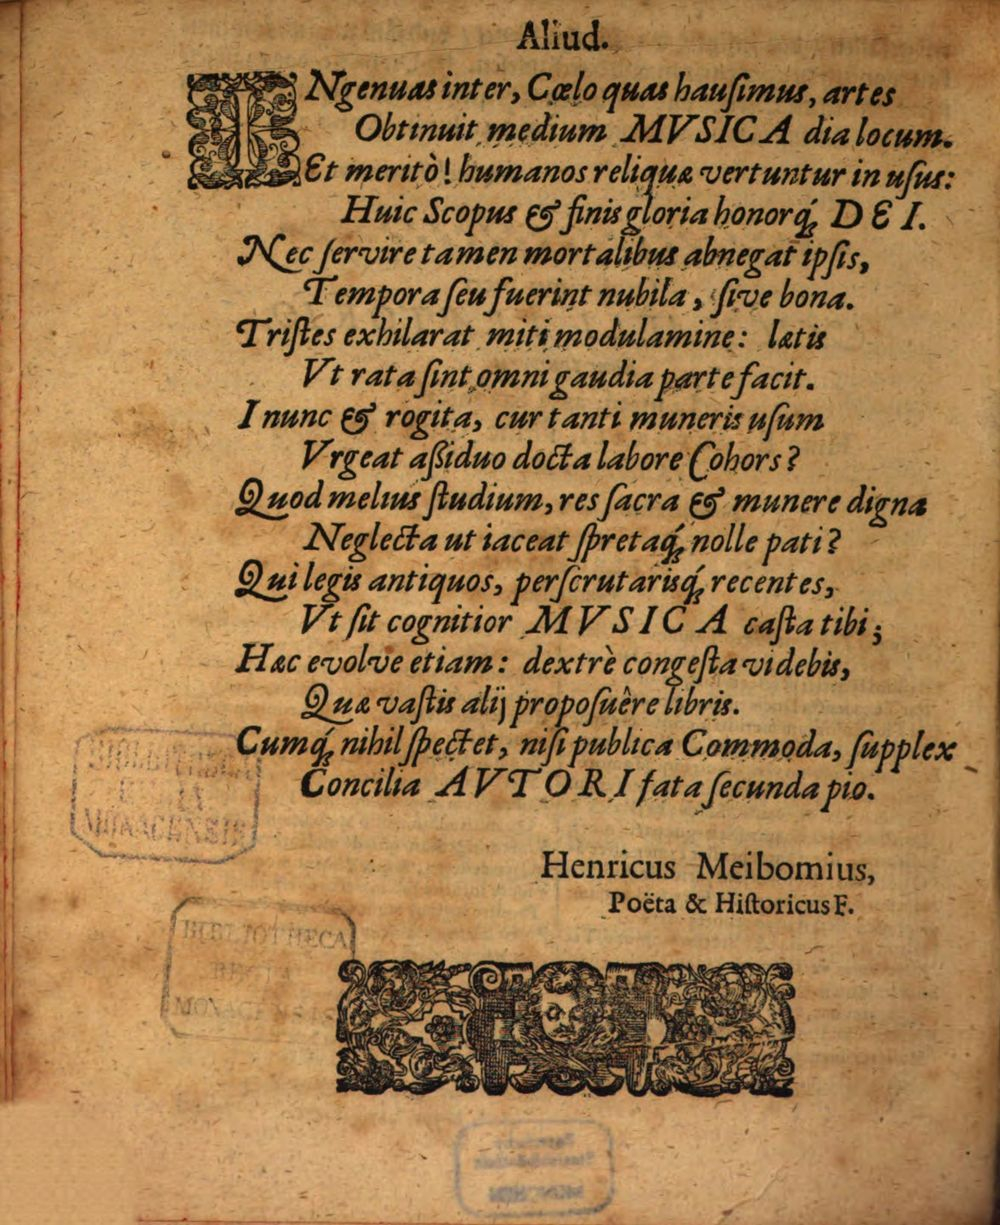 Aliud.
INgenuas inter, Cœlo quas hauſimus, artes
Obtinuit medium MVSICA dia locum.
Et meritò! humanos reliquæ vertuntur in uſus:
Huic Scopus & finis gloria honorq́; DEI.
Nec ſervire tamen mortalibus abnegat ipſis,
Tempora ſeu fuerint nubila, ſive bona.
Triſtes exhilarat miti modulamine: lætis
Vt rata ſint omni gaudia parte facit.
I nunc & rogita, cur tanti muneris uſum
Vrgeat aßiduo docta labore Cohors?
Quod melius ſtudium, res ſacra & munere digna
Neglecta ut iaceat ſpretaq́; nolle pati?
Qui legis antiquos, perſcrutarisq́; recentes,
Vt ſit cognitior MVSICA caſta tibi;
Hæc evolve etiam: dextrè congeſta videbis,
Quæ vaſtis alij propoſuêre libris.
Cumq́; nihil ſpectet, niſi publica Commoda, ſupplex
Concilia AVTORI fata ſecunda pio.
Henricus Meibomius,
Poëta & Hiſtoricus F.
MONACENSIS
BIBLIOTHECA
REGIA
MONACENSIS